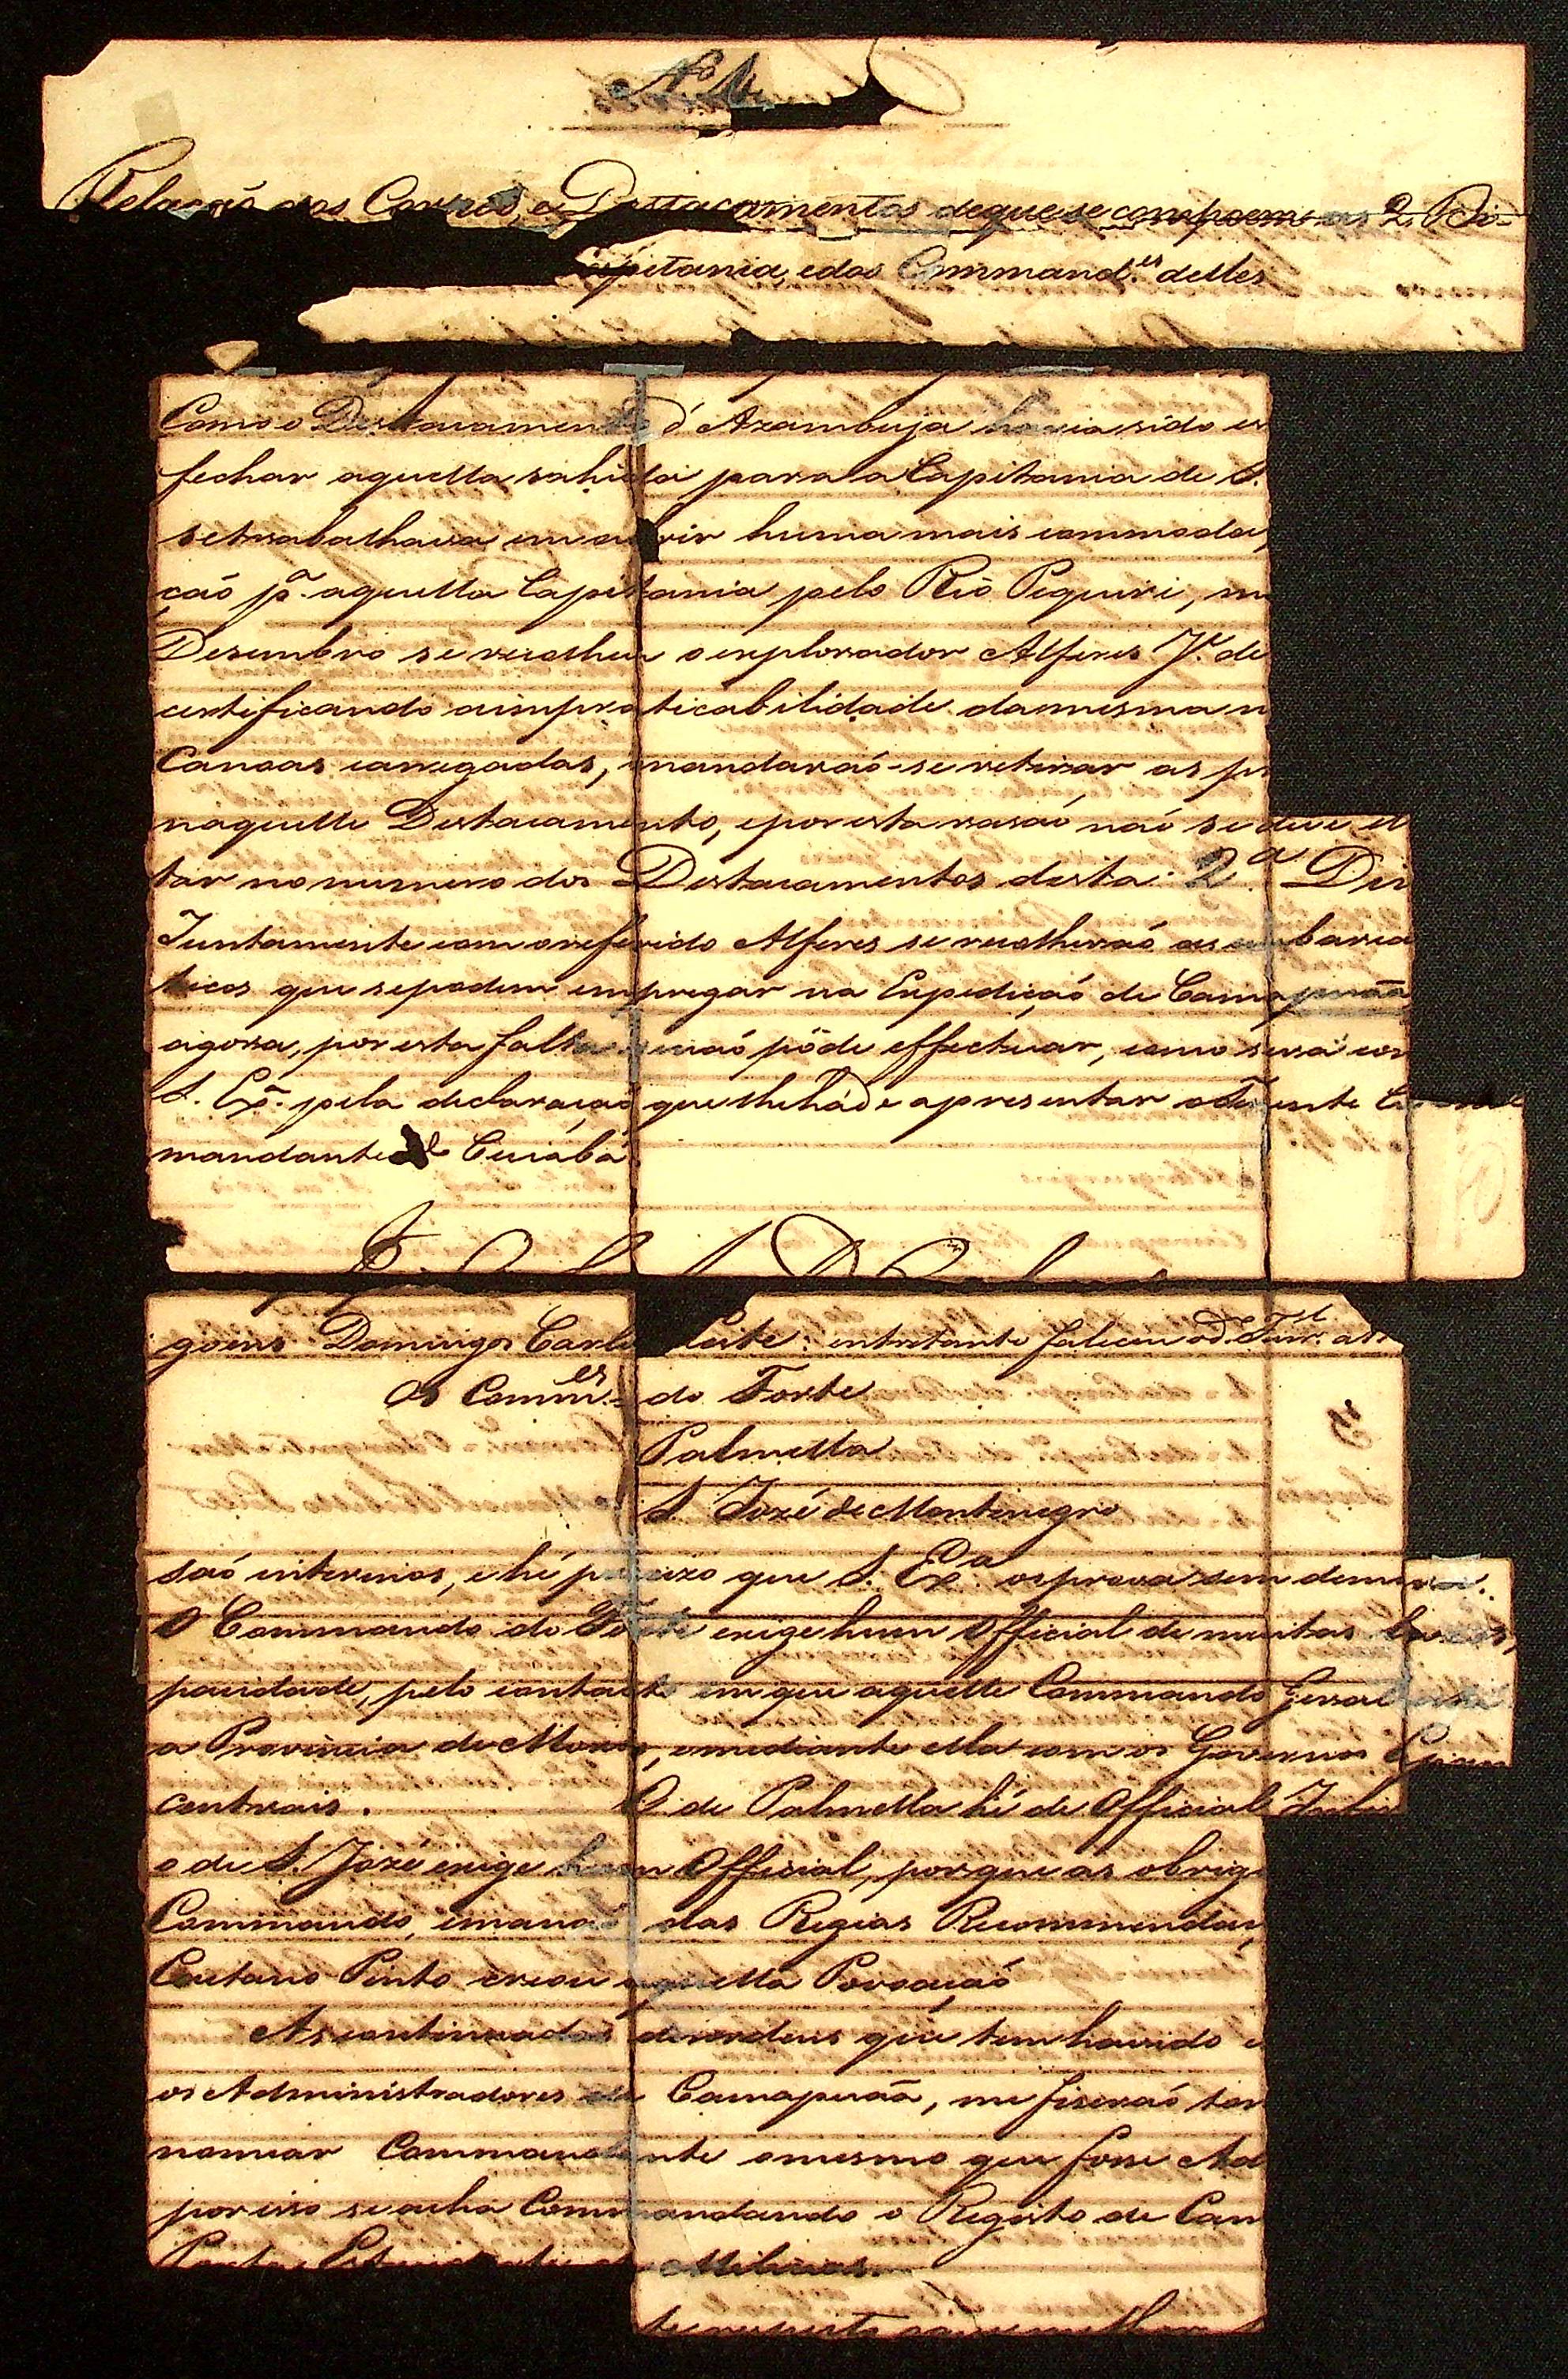 N.º 1
Relação dos Corpos, e Destacamentos de que se compoem as 2. Di-
Capitania, e dos Command.es delles
Como o Destacamento d'Azambuja havia sido es
fechar aquella sahida para a Capitania de S.
se trabalhava em abrir huma mais commoda,
ção p.ª aquella Capitania pelo Rio Pequiri, m
Desembro se recolheu o explorador Alferes J.e de
certificando a impraticabilidade da mesma n
Canoas carregadas, mandaraõ-se retirar as pr
naquelle Destacamento, e por esta rasaõ naõ se deve
tar no numero dos Destacamentos desta 2.ª Div
Juntamente com o referido Alferes se recolheraõ as embarca
ticos que se podem empregar na Expediçaõ de Camapuãa
agora, por esta falta se naõ pôde effectuar, como será con
S. Ex.ª pela declaraçaõ que lhe há de apresentar o Tenente
mandante de Cuiabá
goens Domingos Carlos Leite: entretanto faleceu o d.º Ten.e
Os Comm.es do Forte
Palmella
S. Jozé de Montenegro
saõ interinos, e hé precizo que S. Ex.ª os prova sem demora.
O Commando do Forte exige hum Official de muitas luzes,
pacidade, pelo contacto em que aquelle Commando Geral está
a Provincia de Moxos, e mediante ella com os Governos
centrais. O de Palmella hé de Official Infe
o de S. Jozé exige hum Official, porque as obriga
Commando, emanaõ das Regias Recommendaç
Caetano Pinto creou aquella Povoaçaõ
As continuadas desordens que tem havido e
os Administradores de Camapuãa, me fiseraõ tor
nomear Commandante o mesmo que fosse Ad
por isso se acha Commandando o Registo de Cam
Porta Estandarte de Milicias.